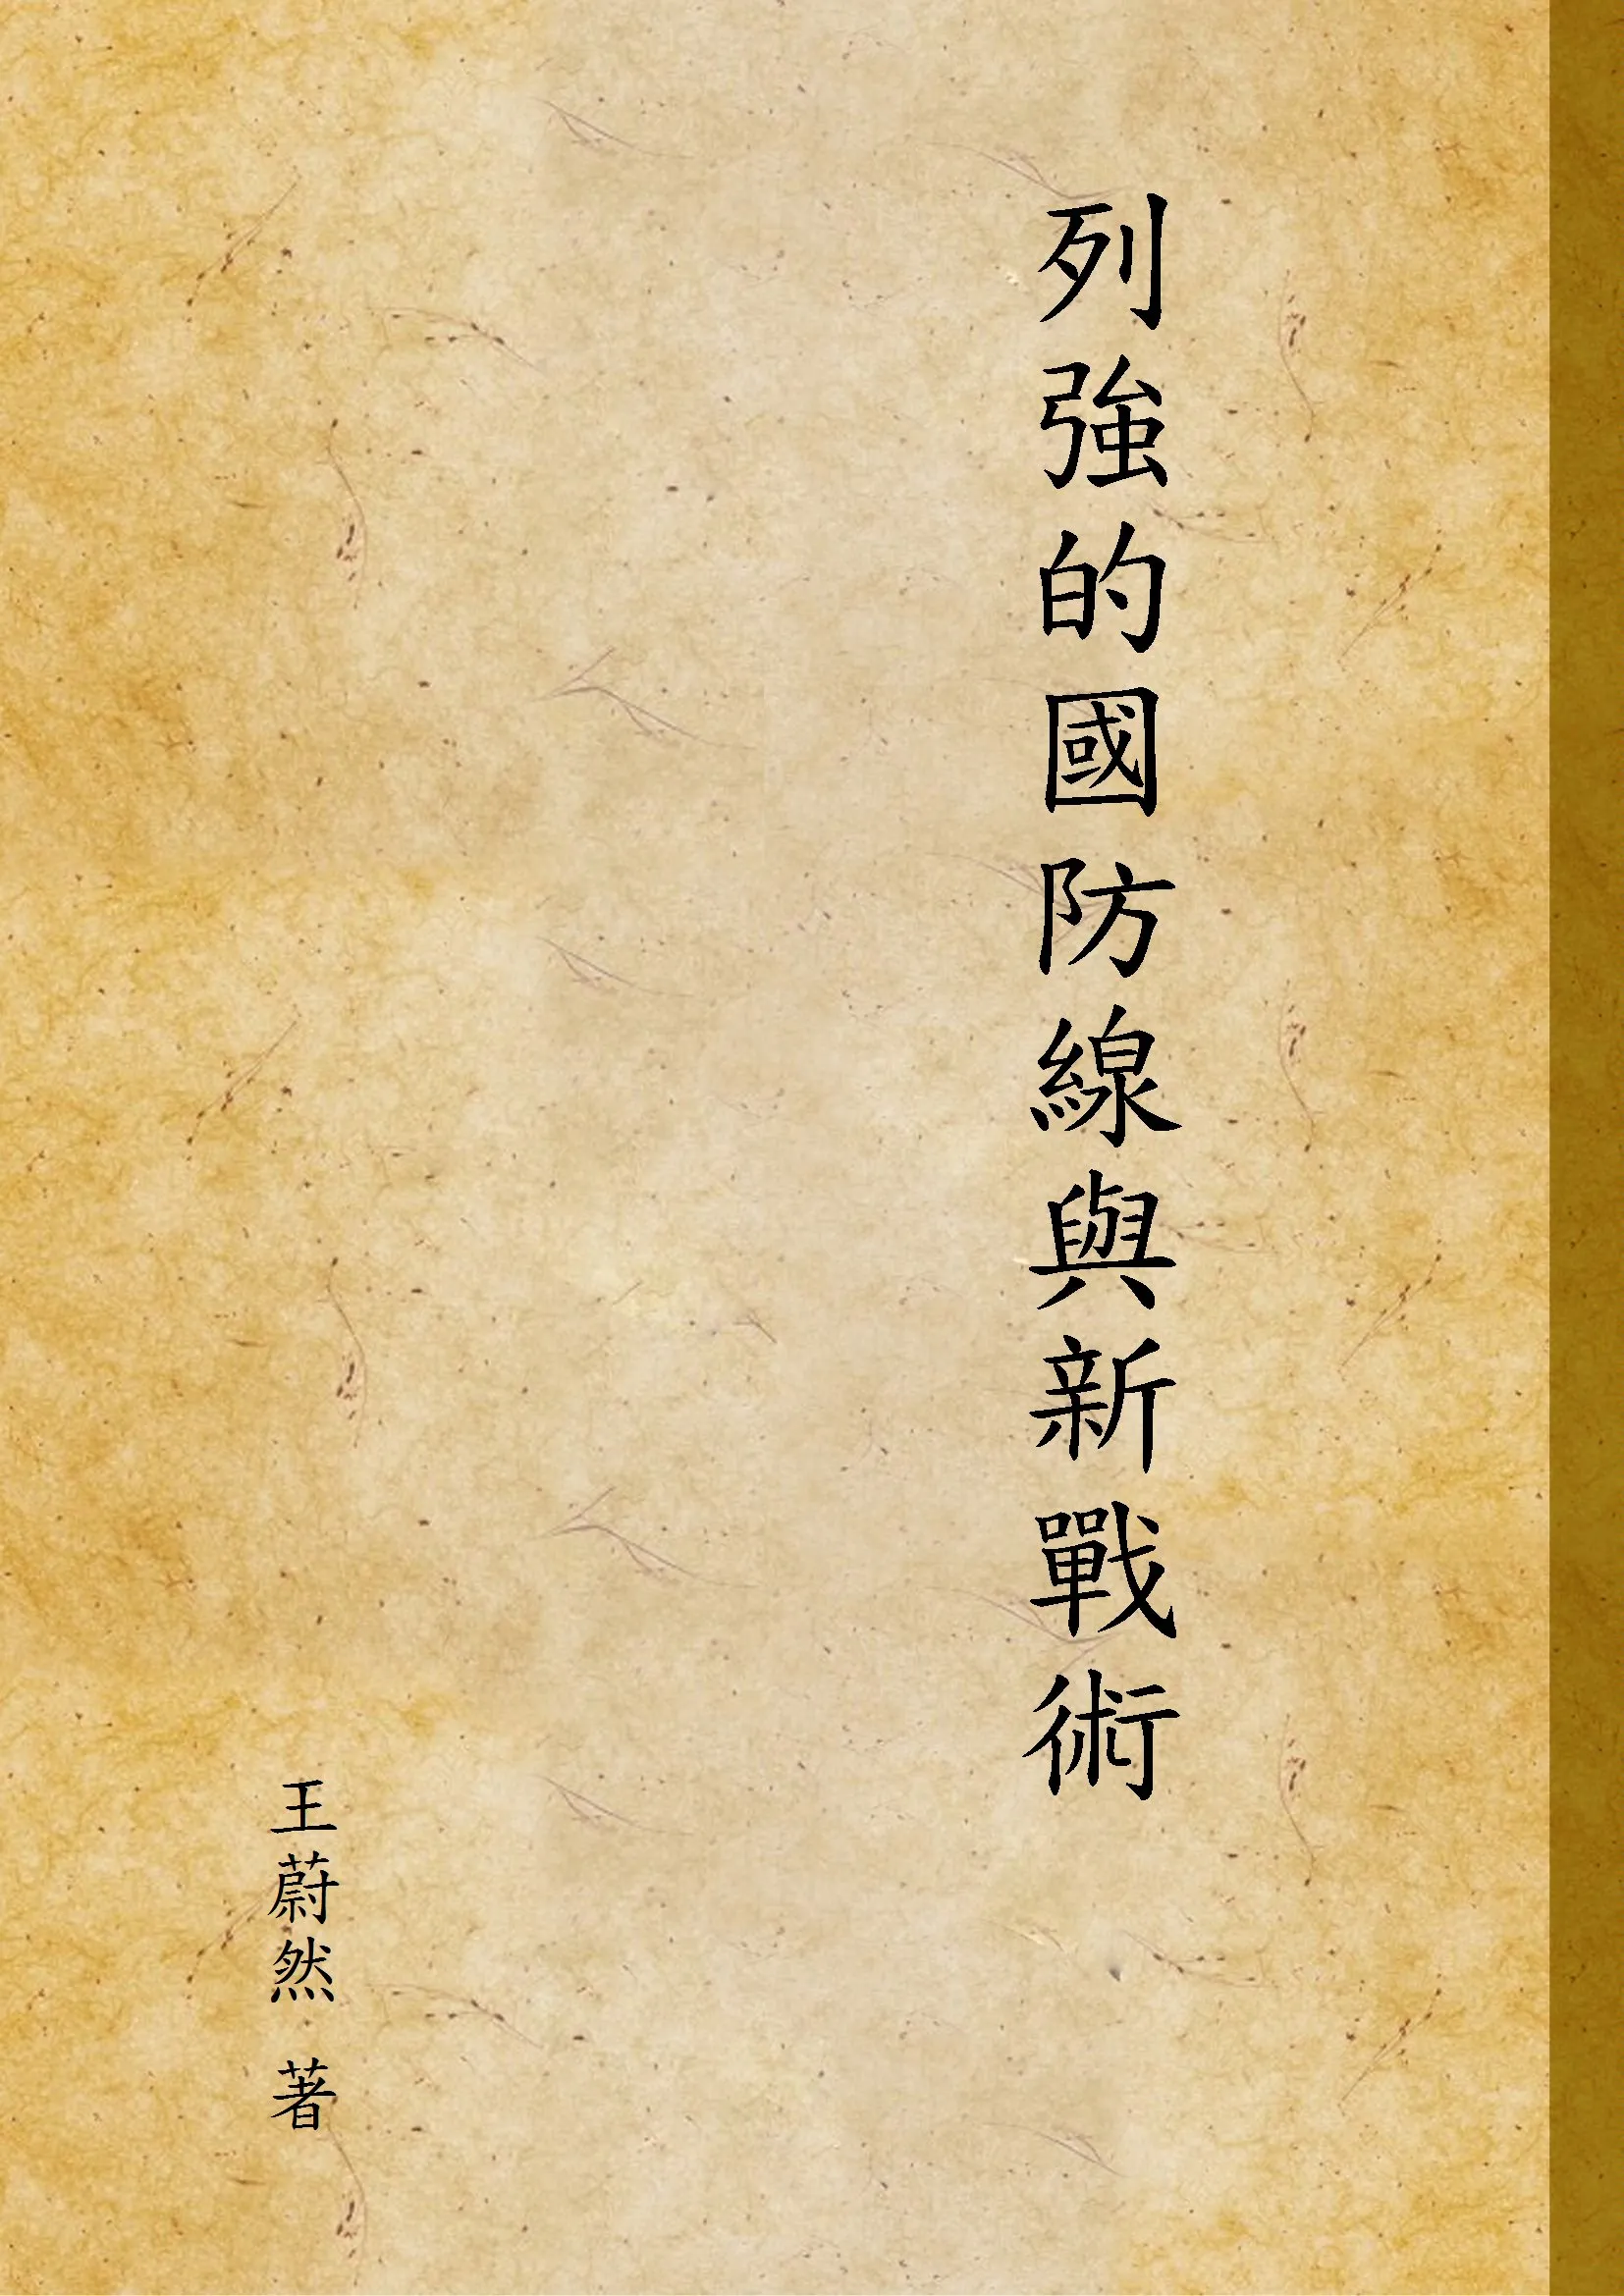 列強的國防線與新戰術
王蔚然 著